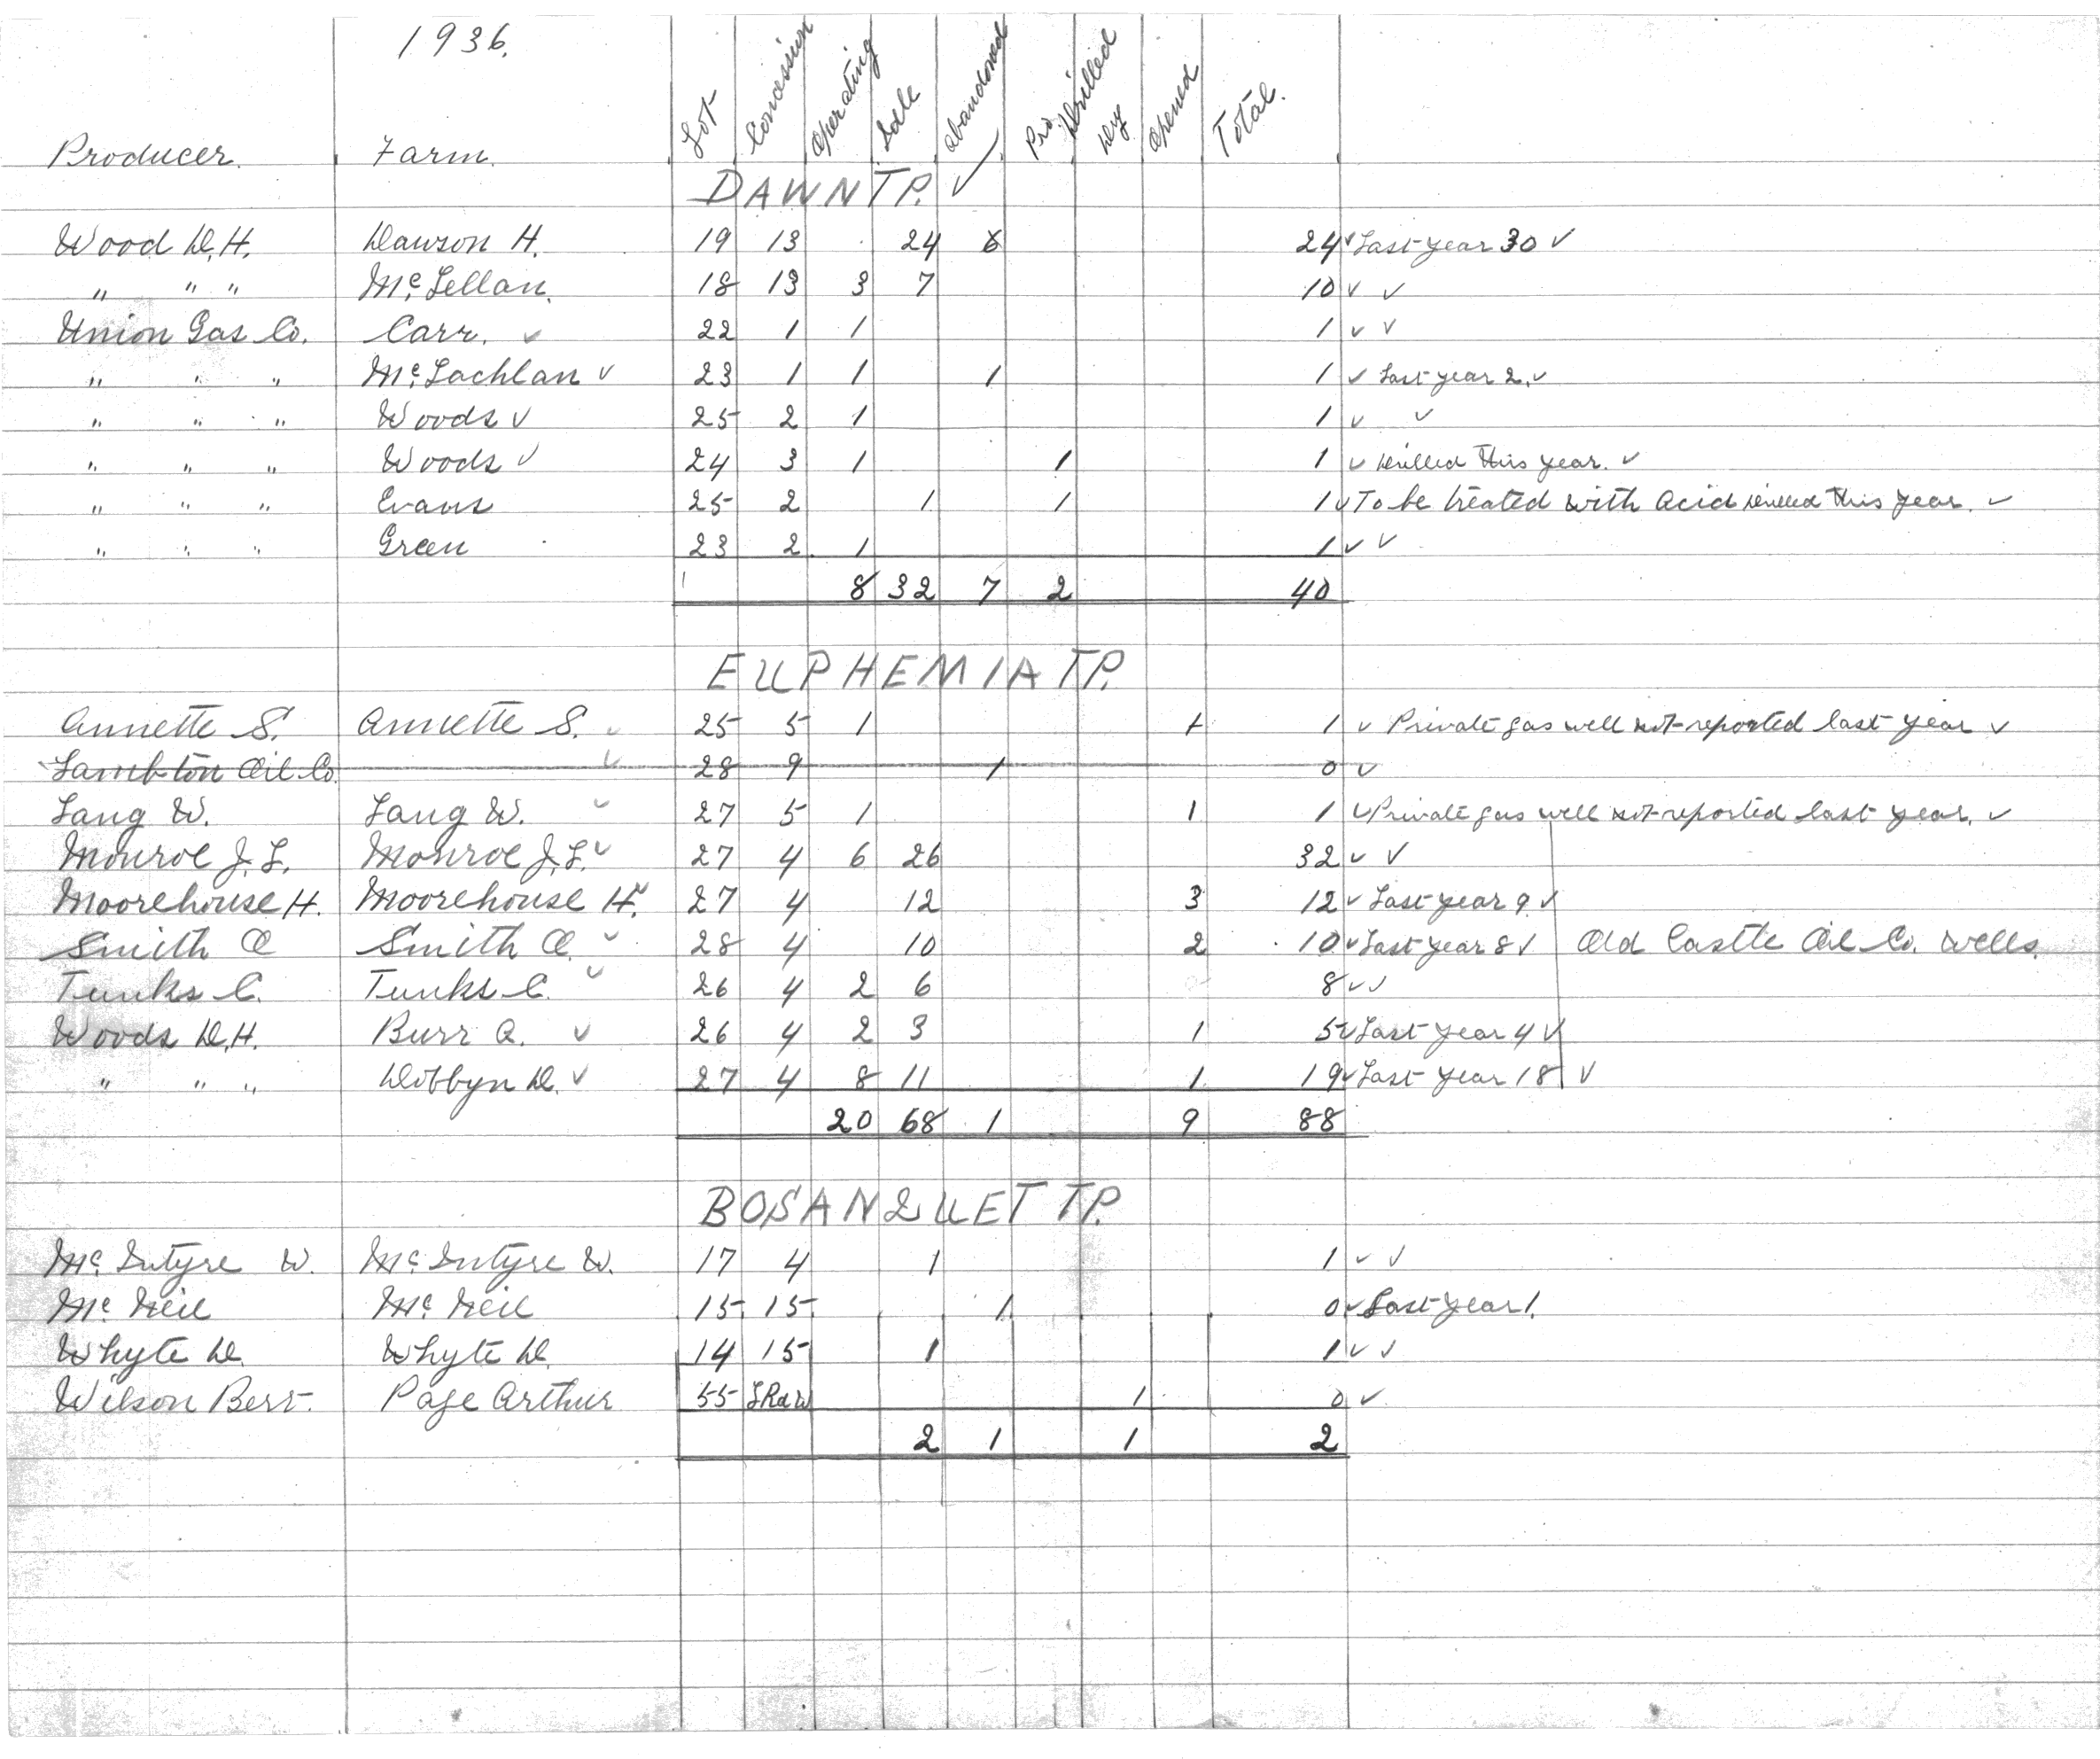 1936.
Producer. Farm. Lot Concession Operating Idle Abandoned Pro. Drilled Dry Opened Total.
DAWN TP. ✓
Wood D.H. Dawson H. 19 13 24 6 24 ✓ Last year 30 ✓
" " " Mc Lellan. 18 13 3 7 10 ✓ ✓
Union Gas Co. Carr. ✓ 22 1 1 1 ✓ ✓
" " " Mc Lachlan ✓ 23 1 1 1 1 ✓ Last year 2. ✓
" " " Woods ✓ 25 2 1 1 ✓ ✓
" " " Woods ✓ 24 3 1 1 1 ✓ Drilled this year. ✓
" " " Evans 25 2 1 1 1 ✓ To be treated with acid Drilled this year. ✓
" " " Green 23 2 1 1 ✓ ✓
8 32 7 2 40
EUPHEMIA TP.
Annette S. Annette S. ✓ 25 5 1 1 1 ✓ Private gas well not reported last year ✓
Lambton Oil Co. ✓ 28 9 1 0 ✓
Lang W. Lang W. ✓ 27 5 1 1 1 ✓ Private gas well not reported last year. ✓
Monroe J.L. Monroe J.L. ✓ 27 4 6 26 32 ✓ ✓
Moorehouse H. Moorehouse H. ✓ 27 4 12 3 12 ✓ Last year 9 ✓
Smith O Smith O. ✓ 28 4 10 2 10 ✓ Last year 8 ✓ Old Castle Oil Co. wells.
Tunks C. Tunks C. ✓ 26 4 2 6 8 ✓ ✓
Woods D.H. Burr Q. ✓ 26 4 2 3 1 5 ✓ Last year 4 ✓
" " " Dobbyn D. ✓ 27 4 8 11 1 19 ✓ Last year 18 ✓
20 68 1 9 88
BOSANQUET TP.
Mc Intyre W. Mc Intyre W. 17 4 1 1 ✓ ✓
Mc Neil Mc Neil 15 15 1 0 ✓ Last year 1.
Whyte D. Whyte D. 14 15 1 1 ✓ ✓
Wilson Bert. Page Arthur 55 LRdW 1 0 ✓
2 1 1 2